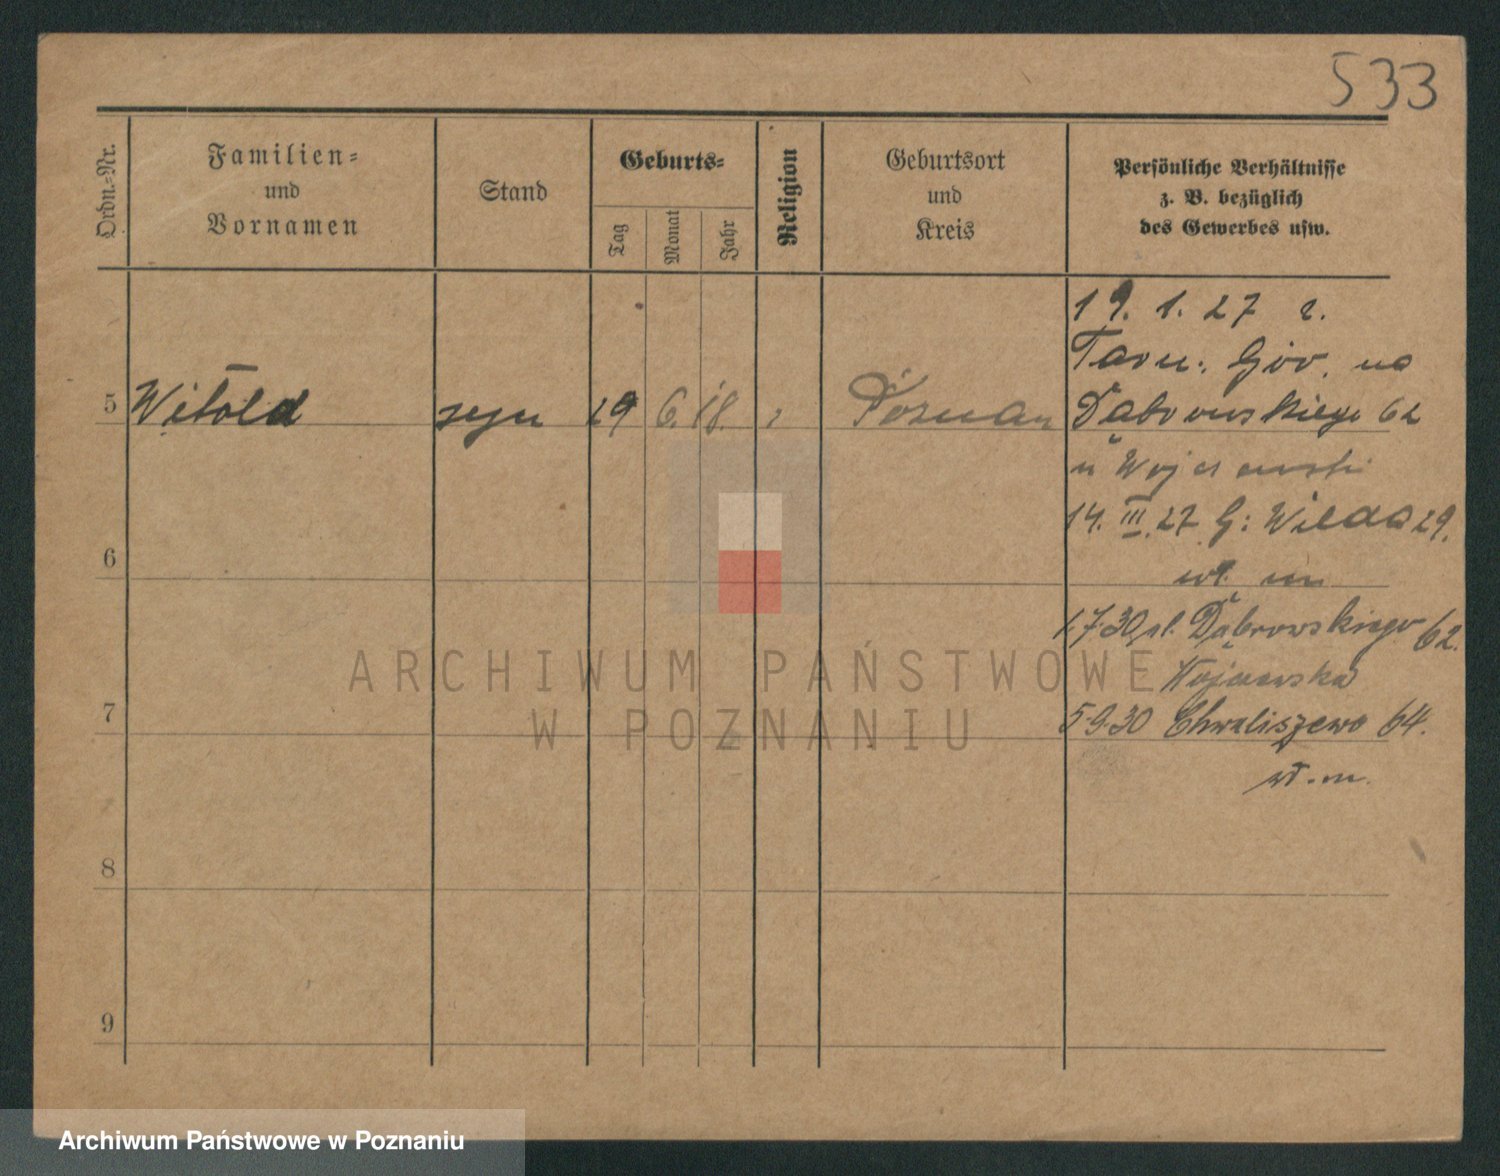 533
Ordn.-Nr.
Familien-
und
Vornamen
Stand
Geburts-
Tag
Monat
Jahr
Religion
Geburtsort
und
Kreis
Persönliche Verhältnisse
z. B. bezüglich
des Gewerbes usw.
19. 1. 27 r.
Tarn. Gór. na
5 Witold syn 29 6. 18. Poznań Dąbrowskiego 62
u
14. III. 27 G: Wilda 29.
6 wł. m
1.7.30 pl. Dąbrowskiego 62.
ARCHIWUM PAŃSTWOWE
7 5.9.30 Chwaliszewo 64.
W POZNANIU
wł. m.
8
9
Archiwum Państwowe w Poznaniu